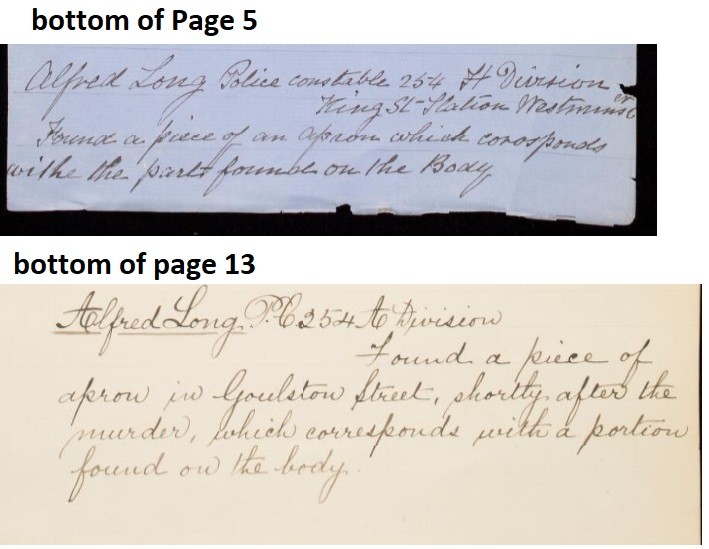 bottom of Page 5
Alfred Long Police constable 254 A Division
King St Station Westminster
Found a piece of an apron which corosponds
withe the part found on the Body
bottom of page 13
Alfred Long P.C. 254 A Division
Found a piece of
apron in Goulston Street, shortly after the
murder, which corresponds with a portion
found on the body.